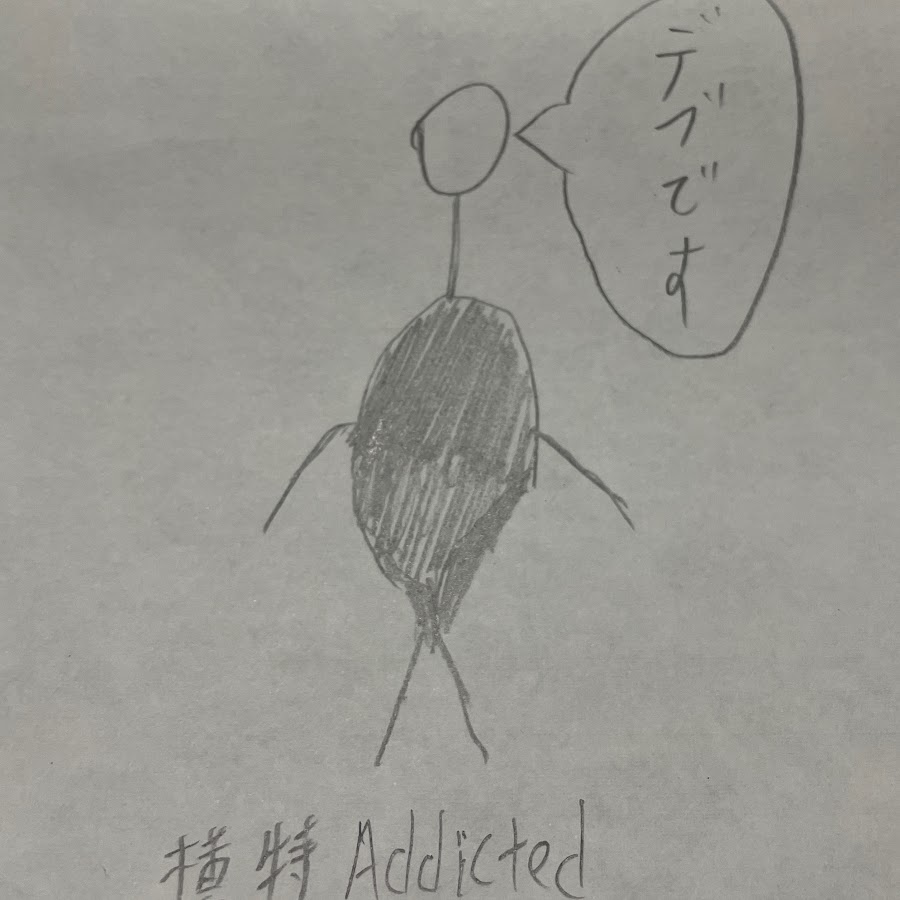 デブです
横特 Addicted